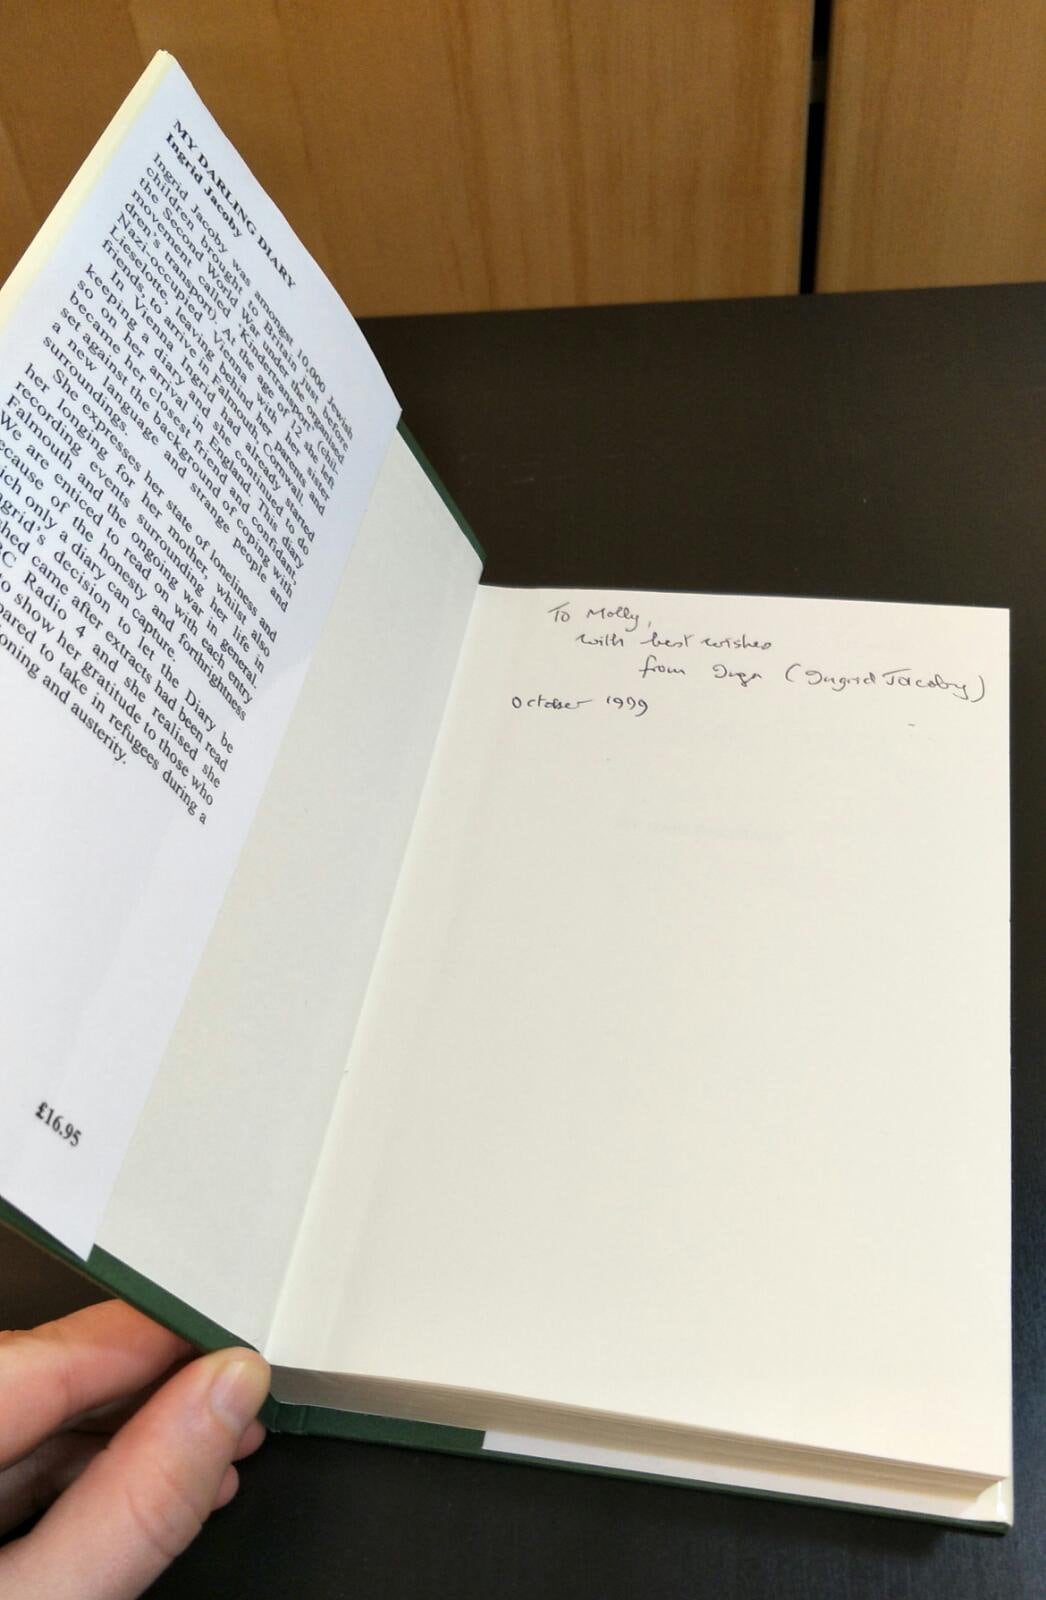 MY DARLING DIARY
Ingrid Jacoby
Ingrid Jacoby was amongst 10,000 Jewish
children brought to Britain just before
the Second World War under the organised
movement called 'Kindertransport' (chil-
dren's transport). At the age of 12 she left
Nazi-occupied Vienna with her sister
Lieselotte, leaving behind her parents and
friends, to arrive in Falmouth, Cornwall.
In Vienna, Ingrid had already started
keeping a diary and she continued to do
so on her arrival in England. This diary
became her closest friend and confidant,
set against the background of coping with
a new language and strange people and
surroundings.
She expresses her state of loneliness and
her longing for her mother, whilst also
recording events surrounding her life in
Falmouth and the ongoing war in general.
We are enticed to read on with each entry
because of the honesty and forthrightness
which only a diary can capture.
Ingrid's decision to let the Diary be
came after extracts had been read
Radio 4 and she realised she
to show her gratitude to those who
to take in refugees during a
and austerity.
£16.95
To Molly,
with best wishes
from Inga (Ingrid Jacoby)
October 1999